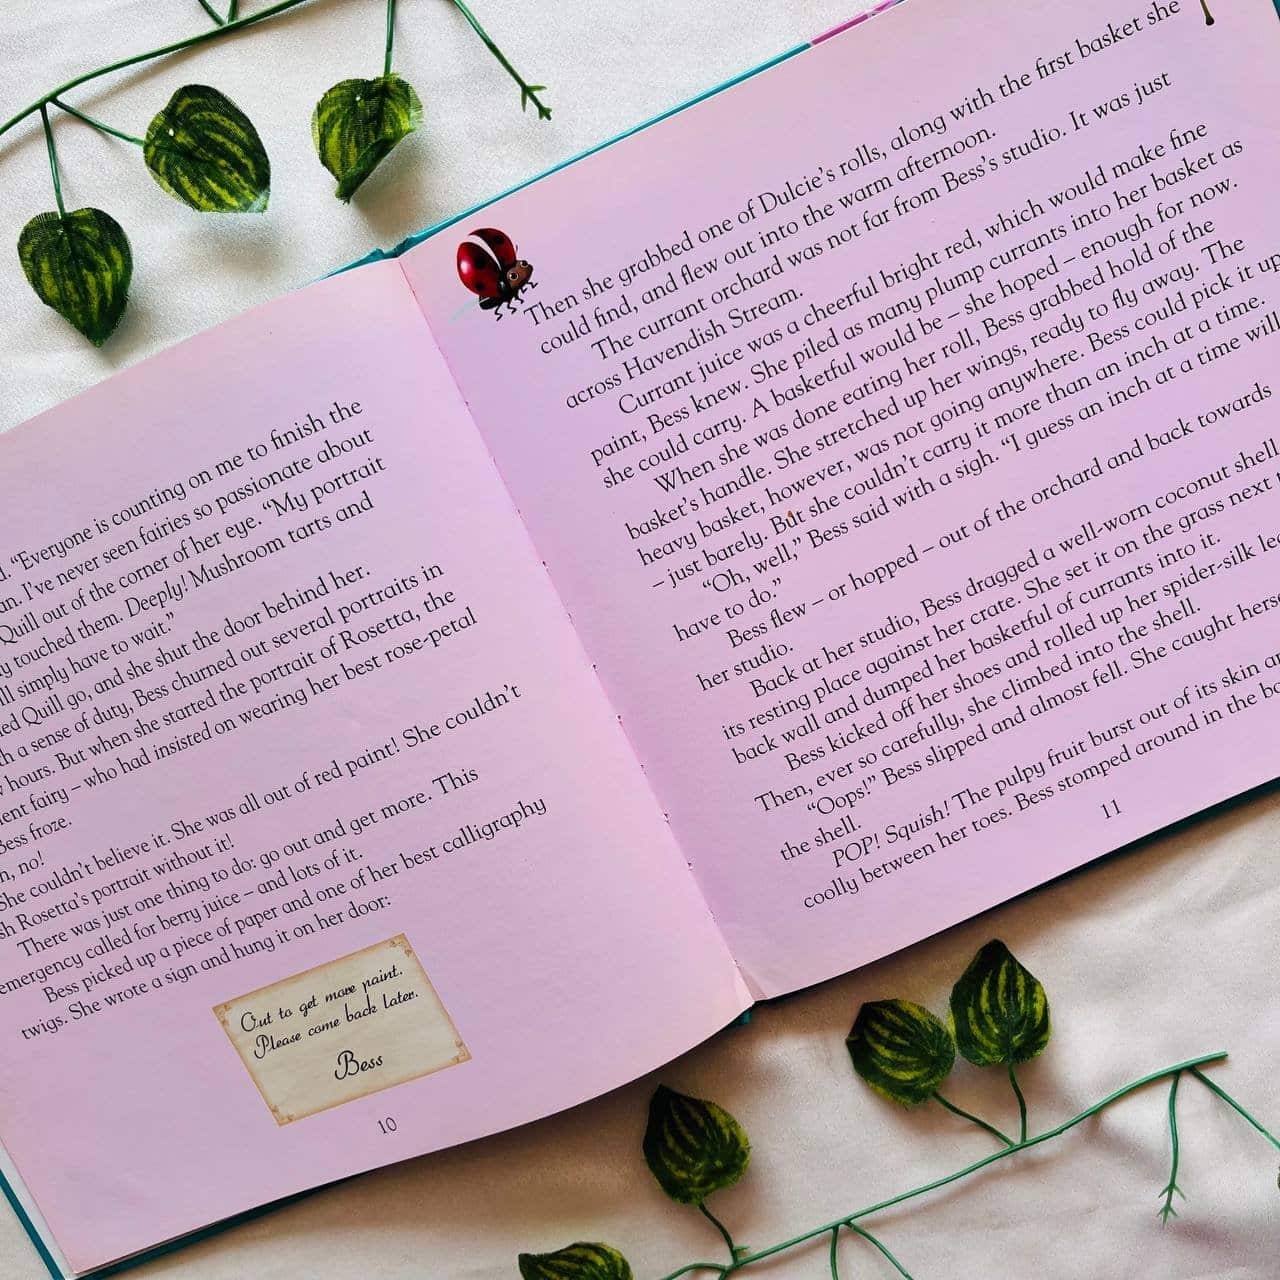 "Everyone is counting on me to finish the
an. I've never seen fairies so passionate about
Quill out of the corner of her eye. "My portrait
y touched them. Deeply! Mushroom tarts and
ll simply have to wait."
ed Quill go, and she shut the door behind her.
h a sense of duty, Bess churned out several portraits in
hours. But when she started the portrait of Rosetta, the
ent fairy – who had insisted on wearing her best rose-petal
Bess froze.
h, no!
She couldn't believe it. She was all out of red paint! She couldn't
sh Rosetta's portrait without it!
There was just one thing to do: go out and get more. This
emergency called for berry juice – and lots of it.
Bess picked up a piece of paper and one of her best calligraphy
twigs. She wrote a sign and hung it on her door:
Out to get more paint.
Please come back later.
Bess
10
Then she grabbed one of Dulcie's rolls, along with the first basket she
could find, and flew out into the warm afternoon.
The currant orchard was not far from Bess's studio. It was just
across Havendish Stream.
Currant juice was a cheerful bright red, which would make fine
paint, Bess knew. She piled as many plump currants into her basket as
she could carry. A basketful would be – she hoped – enough for now.
When she was done eating her roll, Bess grabbed hold of the
basket's handle. She stretched up her wings, ready to fly away. The
heavy basket, however, was not going anywhere. Bess could pick it up
– just barely. But she couldn't carry it more than an inch at a time.
"Oh, well," Bess said with a sigh. "I guess an inch at a time will
have to do."
Bess flew – or hopped – out of the orchard and back towards
her studio.
Back at her studio, Bess dragged a well-worn coconut shell
its resting place against her crate. She set it on the grass next
back wall and dumped her basketful of currants into it.
Bess kicked off her shoes and rolled up her spider-silk
Then, ever so carefully, she climbed into the shell.
"Oops!" Bess slipped and almost fell. She caught
the shell.
POP! Squish! The pulpy fruit burst out of its skin
coolly between her toes. Bess stomped around in the
11